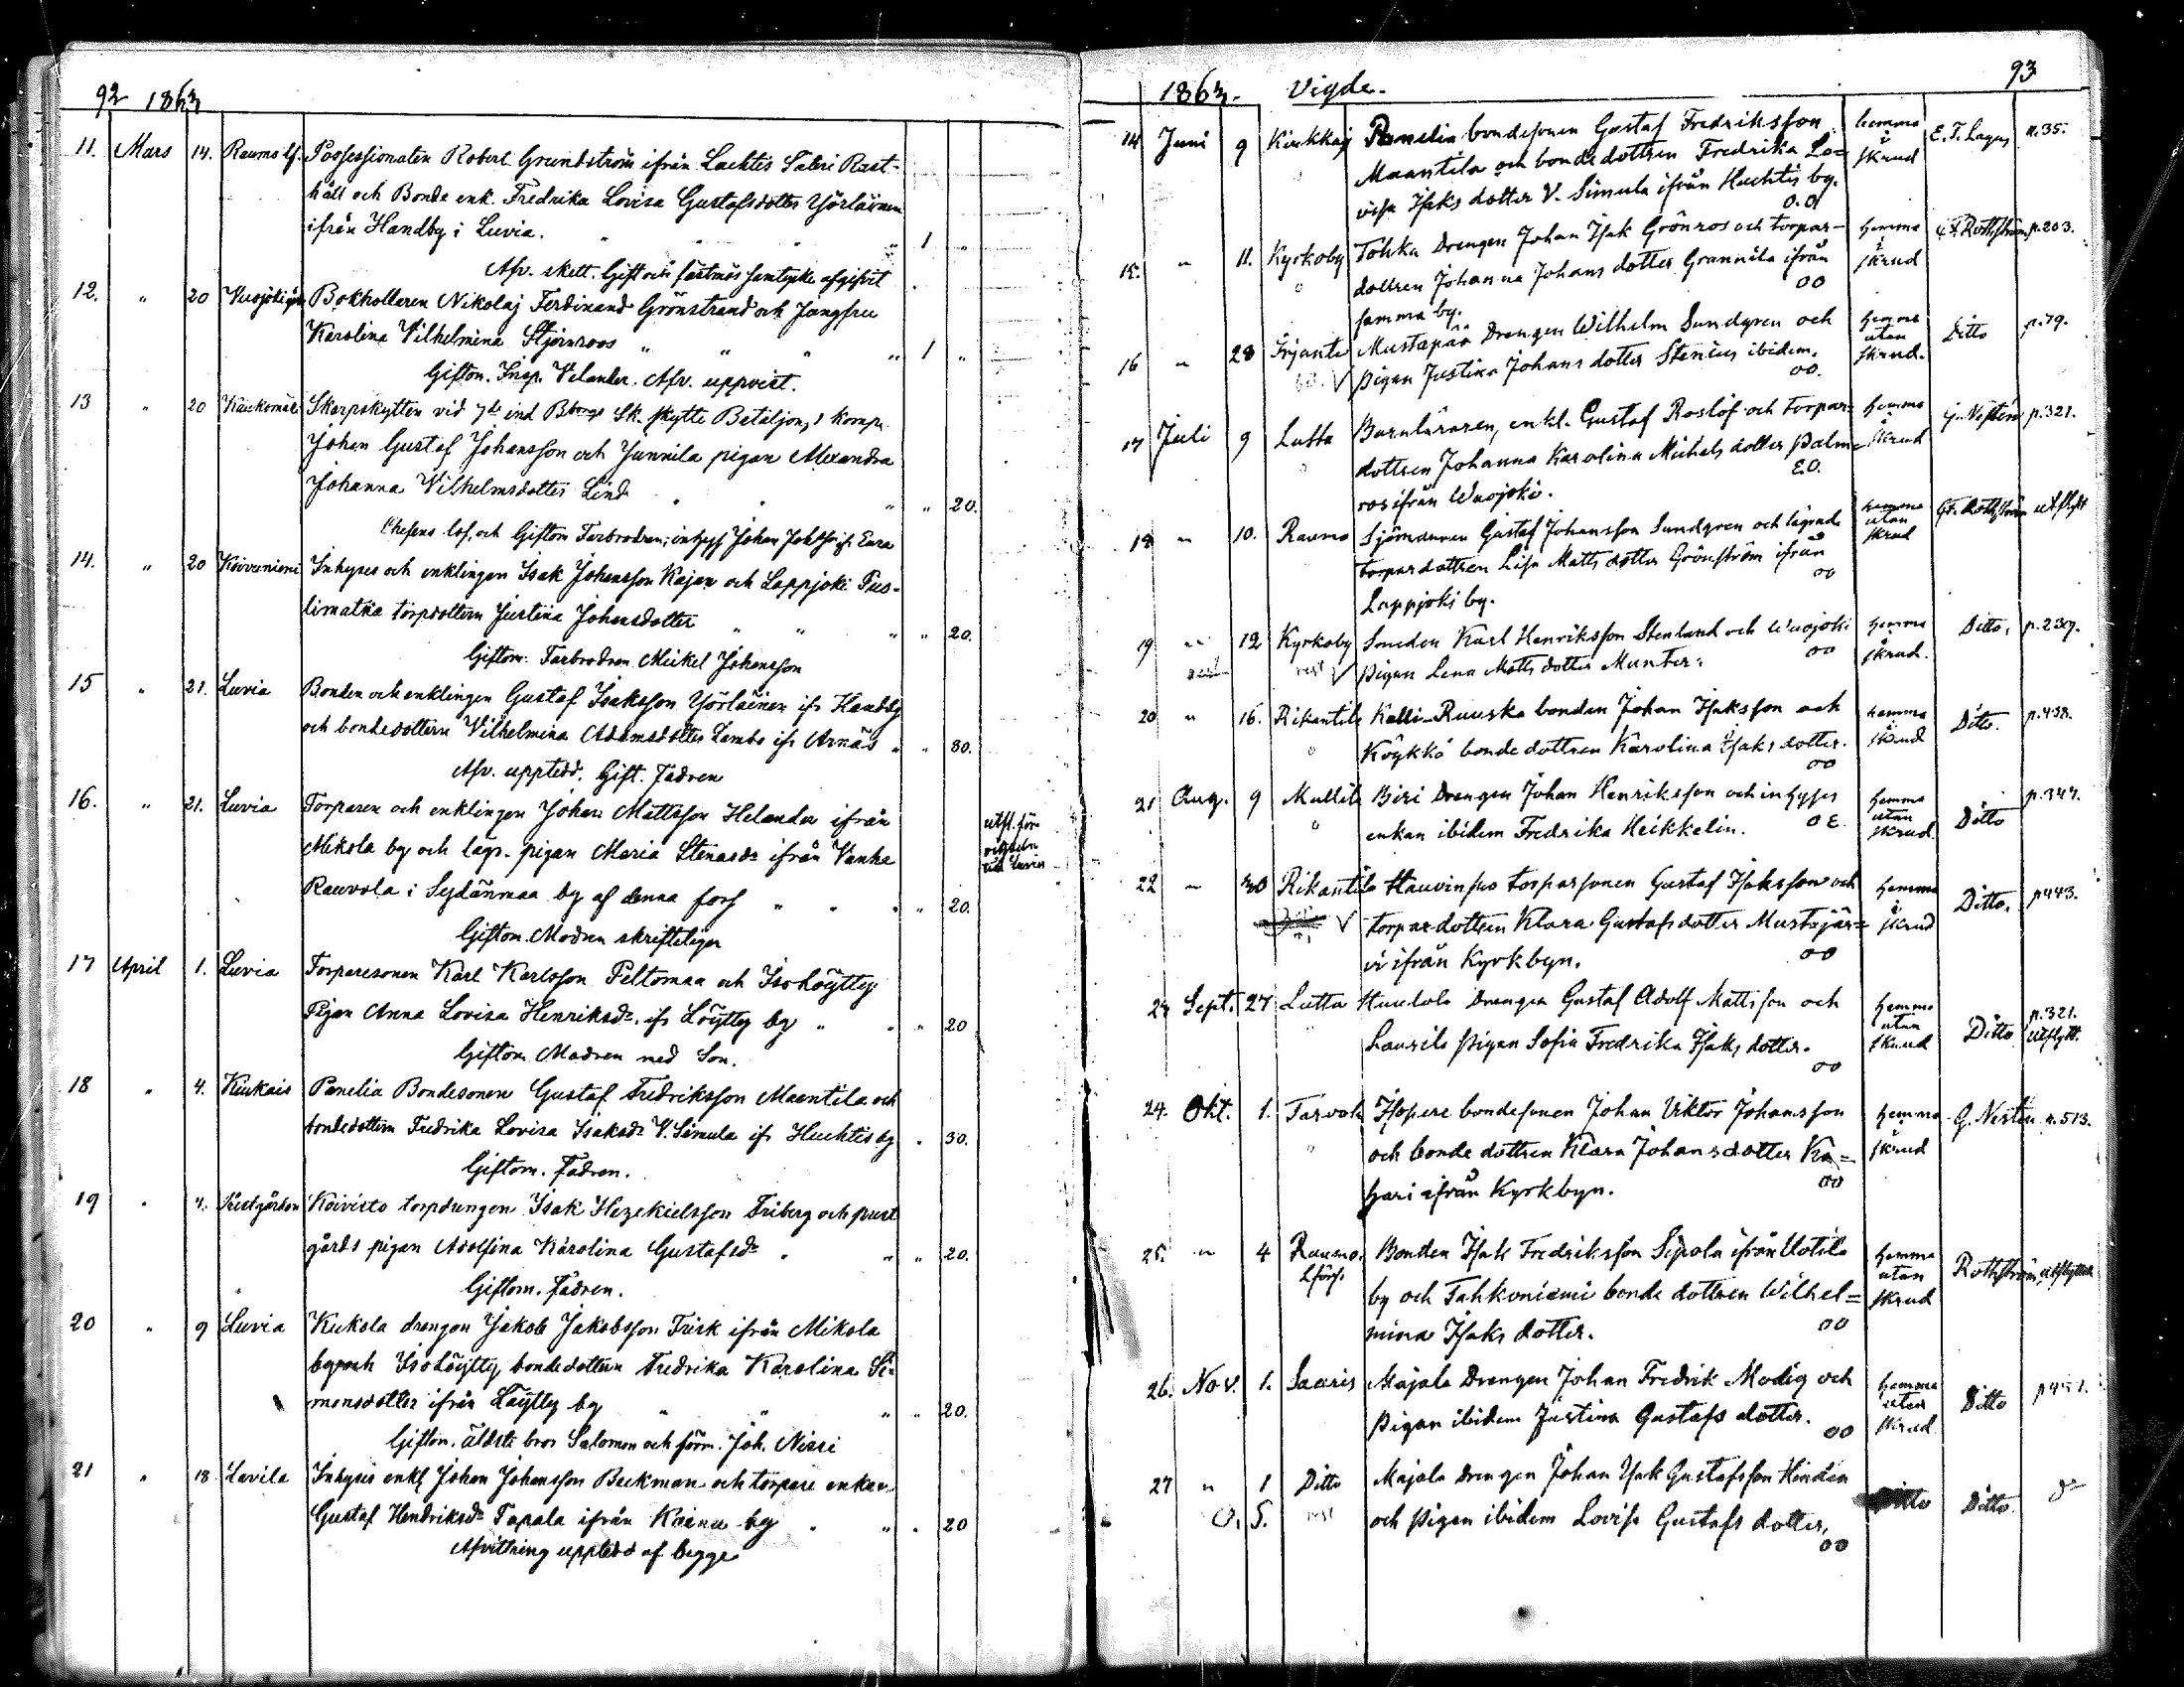 92 1863
11. Mars 14. Raumo lf. Possessionaten Robert Grundström ifrån Lachtis Säteri Rust-
håll och Bonde enk. Fredrika Lovisa Gustafsdotter Yörläinen
ifrån Handby i Luvia. " " " " 1 "
Afv. skett. Gift och fästmös samtycke afgifvit
12. " 20 Bokhollaren Nikolaj Ferdinand Grönstrand och Jungfru
Karolina Vilhelmina Stjernroos " " " " 1 "
Gifton. Insp. Velander. Afv. uppvist.
13 " 20 Kaukomäe Skarpskytten vid 7de ind Sk. skytte Bataljon, 1 Komp.
Johan Gustaf Johansson och Junnila pigan Alexandra
Johanna Vilhelmsdotter Lind " " " " 20.
Chefens lof, och Giftom Farbrodren, inhys Johan ifr. Eura
14. " 20 Koivuniemi Inhyses och enklingen Isak Johansson Kajan och Lappjoki Pus-
limatka torpdottern Justina Johansdotter " " " " 20.
Giftom: Farbrodren Mickel Johansson
15 " 21. Luvia Bonden och enklingen Gustaf Isaksson Yörläinen ifr Handby
och bondedottern Vilhelmina Adamsdotter Lembo ifr Arnäs " " 80.
Afv. upptedd. Gift. Fadren
16. " 21. Luvia Torparen och enklingen Johan Mattsson Helander ifrån
Mikola by och lags. pigan Maria Stenasdr ifrån Vanha
utfl. för
vigseln
till Luvia
Rauvola i Sydänmaa by af denna förs " " " " 20.
Giftom. Modren skrifteligen
17 April 1. Luvia Torparesonen Karl Karlsson Peltomaa och Isohöytty
Pigan Anna Lovisa Henriksdr. ifr Löytty by " " " 20
Giftom. Modren med Son.
18 " 4. Kiukais Panelia Bondesonen Gustaf Fredriksson Maantila och
bondedottern Fredrika Lovisa Isaksdr V. Simula ifr Huchtis by . 30.
Giftom. Fadren.
19 " 4. Koivisto torpdrengen Isak Hezekielsson Friberg och pust
gårds pigan Adolfina Karolina Gustafsdr " " " 20.
Giftom. Fadren.
20 " 9 Luvia Kukola drengen Jakob Jakobsson Frisk ifrån Mikola
by och Isohöytty bondedottern Fredrika Karolina Si-
monsdotter ifrån Löytty by " " " " 20.
Gifton. äldste bror Salomon och förm. Joh. Nissi
21 " 18. Lavila Inhyses enkl Johan Johansson Beckman och torpare enkan
Gustaf Hendriksdr Tapala ifrån Kainu by " " . 20
Afvittring uppteed af begge
93
1863. Vigde.
14 Juni 9 Kiukkais Panelia bondesonen Gustaf Fredriksson hemma E. T. Lagus p.35.
Maantila och bondedottren Fredrika Lo= i skrud
visa Isaks dotter V. Simula ifrån Huchtis by.
O. O
15. " 11. Kyrkoby Tohka Drengen Johan Isak Grönroos och torpar- hemma G. F. Rothström p.203.
dottren Johanna Johans dotter Grannila ifrån i skrud
samma by. OO
16 " 28 Irjante Mustapää Drengen Wilhelm Sundgren och hemma Ditto p.79.
√ pigan Justina Johans dotter Stenius ibidem. utan skrud.
OO.
17 Juli 9 Lutta Barnläraren, enkl. Gustaf Roslöf och torpar= hemma G. Nestén p.321.
dottren Johanna Karolina Michels dotter Palm= i skrud
ros ifrån Wuojoki. E.O.
18 " 10. Raumo Sjömannen Gustaf Johansson Sundgren och hemma G.F. Rothström utflyt
torpardottren Lisa Matts dotter Grönström ifrån utan skrud
Lappjoki by. OO
19 " 12 Kyrkoby Smeden Karl Henriksson Stenlund och Wuojoki hemma Ditto, p.237.
√ pigan Lena Matts dotter Munter. OO i skrud.
20 " 16. Rikantila Kalli-Ruuska bonden Johan Isaksson och hemma Ditto. p.438.
Köykkä bonde dottren Karolina Isaks dotter. i skrud
OO
21 Aug. 9 Mullila Biri Drengen Johan Henriksson och inhyses hemma Ditto p.347.
enkan ibidem Fredrika Heikkelin. O E. utan skrud.
22 " 30 Rikantila Hauvinsuo torparsonen Gustaf Isaksson och hemma Ditto. p443.
√ torpardottren Klara Gustafs dotter Mustajär= i skrud
vi ifrån Kyrkbyn. OO
23 Sept. 27 Lutta Huulola Drengen Gustaf Adolf Mattsson och hemma Ditto p.321.
Laurila pigan Sofia Fredrika Isaks dotter. utan skrud utflytt.
OO
24. Okt. 1. Tarvola Isopere bondesonen Johan Viktor Johansson hemma G. Nestén p.513.
och bonde dottren Klara Johansdotter Ka= i skrud
hari ifrån Kyrkbyn. OO
25. " 4 Raumo Bonden Isak Fredriksson Sipola ifrån Uotila hemma Rothström, utflyttad
l.förs. by och Tahkoniemi bonde dottren Wilhel= utan skrud
mina Isaks dotter. OO
26. Nov. 1. Saaris Majala Drengen Johan Fredrik Modig och hemma Ditto p451.
pigan ibidem Justina Gustafs dotter. utan skrud
OO
27 " 1 Ditto Majala Drengen Johan Isak Gustafsson Hinden Ditto Ditto. do
O. S. och pigan ibidem Lovisa Gustafs dotter,
OO